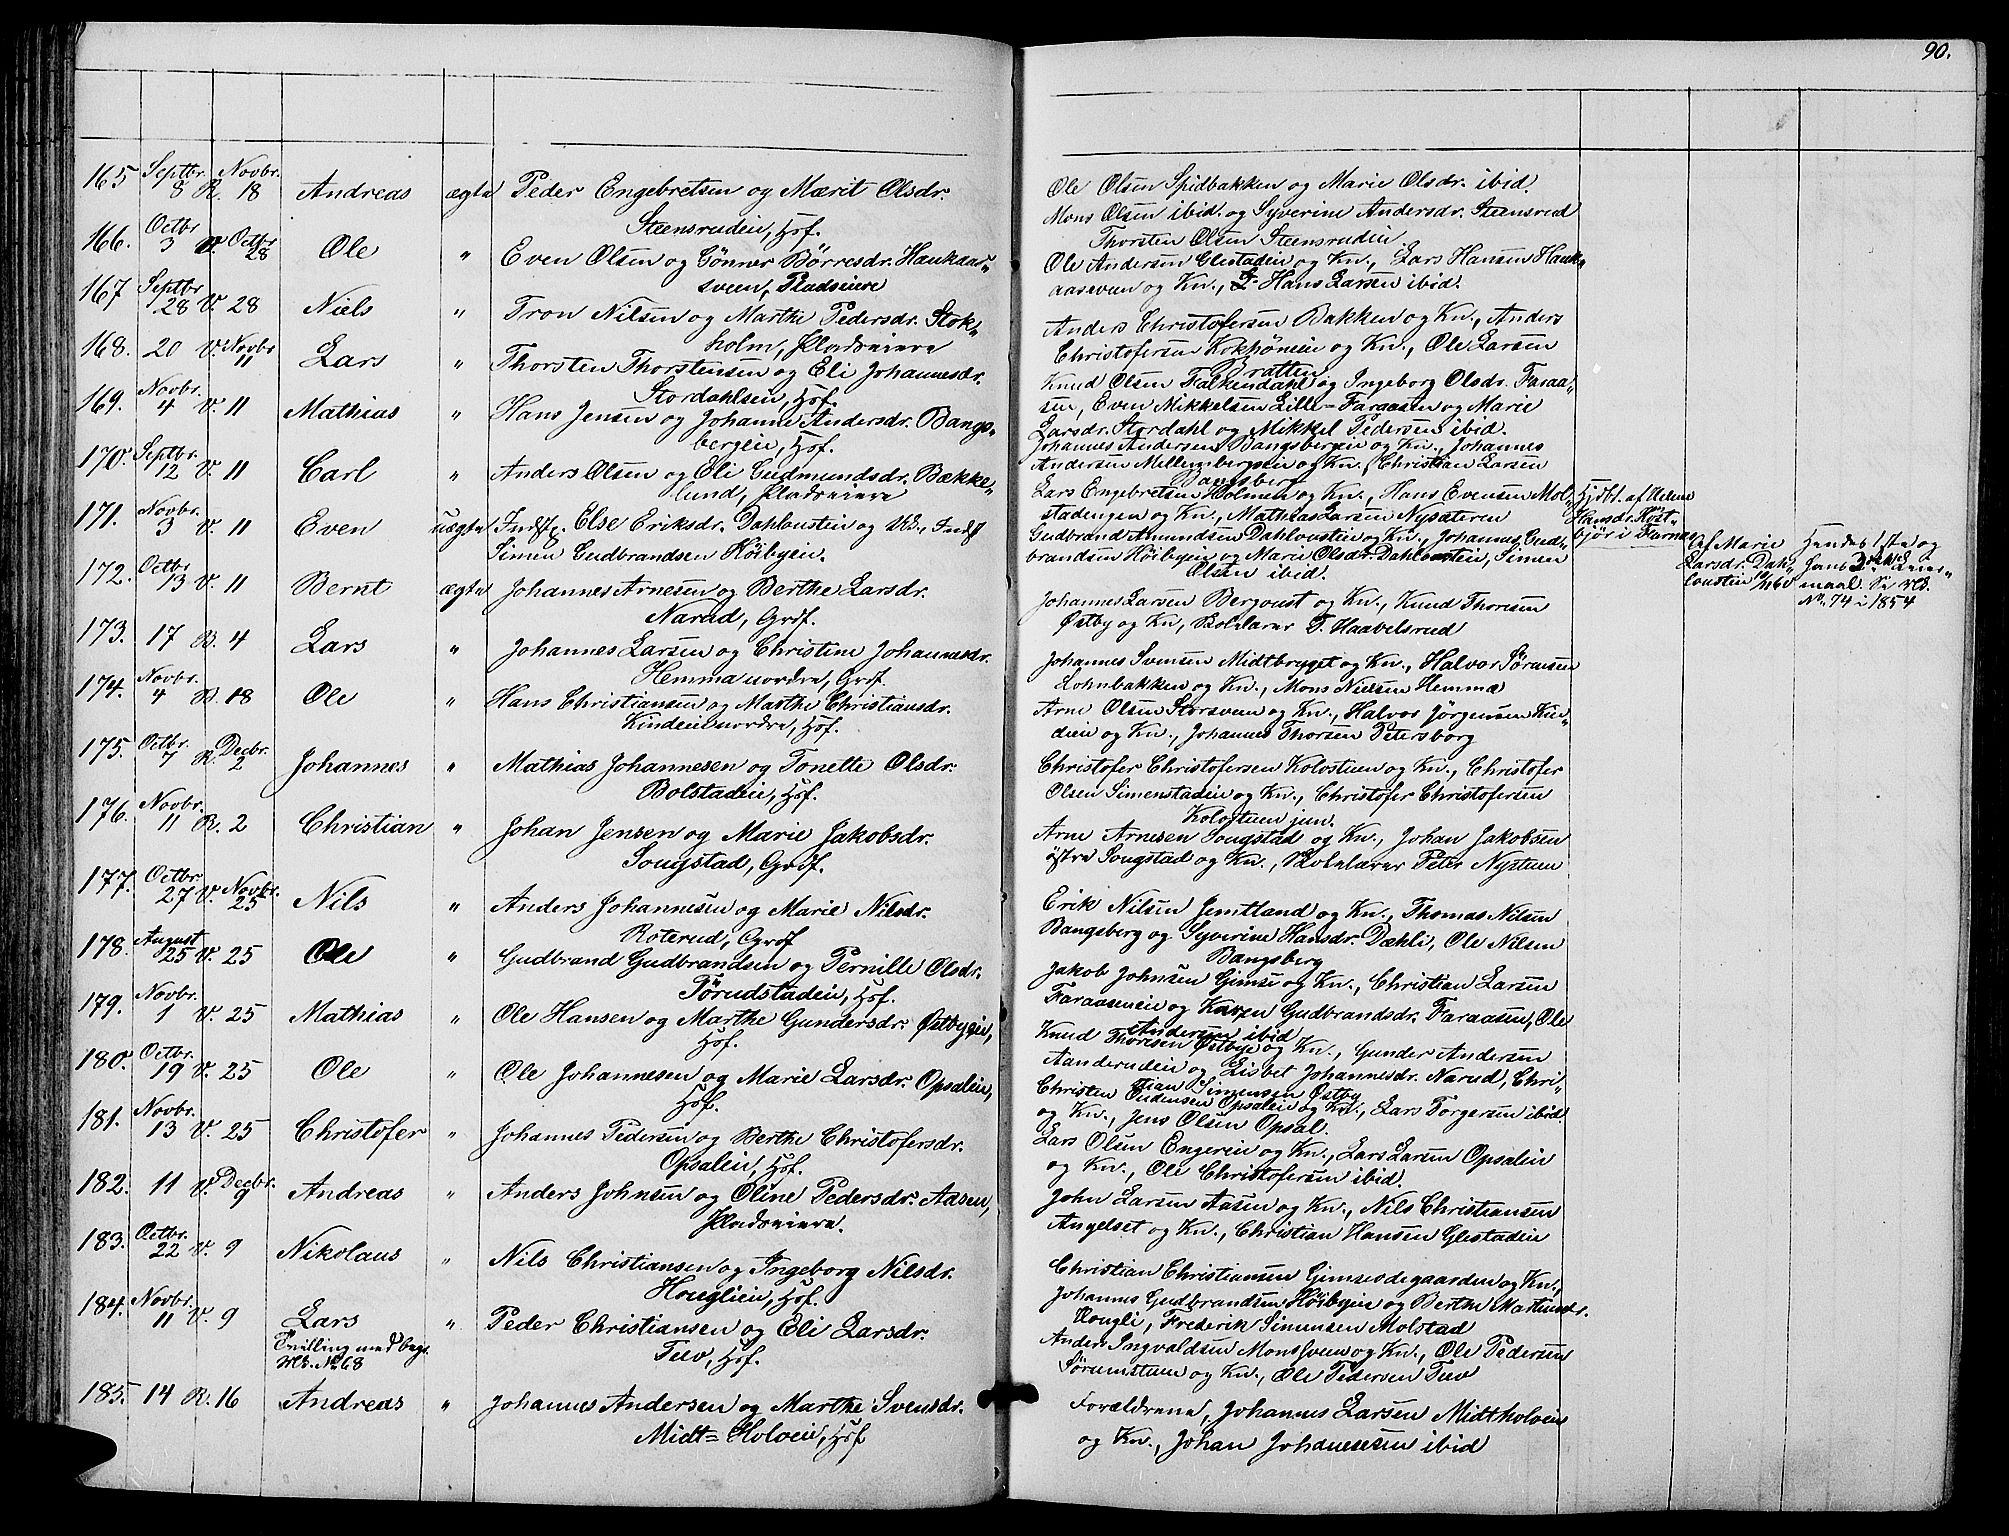 90.
165 Septbr. 8 R. Novbr. 18 Andreas ægte Peder Engebretsen og Marit Olsdr.
Steensrudeie, Hof.
166. Octbr 3 V. Octbr 28 Ole " Even Olsen og Gönner Börresdr. Haukaas-
sveen, Pladseiere
167 Septbr 28 V. 28 Niels " Tron Nilsen og Marthe Pedersdr. Stok-
holm, Pladseiere
168. 20 V. Novbr 11 Lars " Thorsten Thorstensen og Eli Johannesdr.
Stordahlseie, Hof.
169. Novbr. 4 V. 11 Mathias " Hans Jensen og Johanne Andersdr. Bangs-
bergeie, Hof.
170. Septbr. 12 V. 11 Carl " Anders Olsen og Oli Gudmundsdr. Bække-
lund, Pladseiere
171. Novbr. 3 V. 11 Even uægte Indstp. Else Eriksdr. Dahloustein og Indst
Simen Gudbrandsen Höibyeie.
172. Octbr 13 V. 11 Bernt ægte Johannes Arnesen og Berthe Larsdr.
Narud, Grdf.
173. 17 B. 4 Lars " Johannes Larsen og Christine Johannesdr.
Hemma nordre, Grdf.
174. Novbr. 4 B. 18 Ole " Hans Christiansen og Marthe Christiansdr.
Kindeie nordre, Hof.
175. Octbr. 7 R. Decbr. 2 Johannes " Mathias Johannesen og Tonette Olsdr.
Bolstadeie, Hof.
176. Novbr. 11 R. 2 Christian " Johan Jensen og Marie Jakobsdr.
Songstad, Grdf.
177. Octbr. 27 V. Novbr. 25 Nils " Anders Johannesen og Marie Nilsdr.
Roterud, Grdf
178. August 25 V. 25 Ole " Gudbrand Gudbrandsen og Pernille Olsdr.
Törudstadeie, Hof.
179. Novbr. 1 V. 25 Mathias " Ole Hansen og Marthe Gundersdr. Östbyeie,
Hof.
180. Octbr. 19 V. 25 Ole " Ole Johannesen og Marie Larsdr. Opsaleie,
Hof.
181. Novbr. 13 V. 25 Christofer " Johannes Pedersen og Berthe Christofersdr.
Opsaleie, Hof.
182. 11 V. Decbr. 9 Andreas " Anders Johnsen og Oline Pedersdr. Aasen,
Pladseiere.
183. Octbr. 22 V. 9 Nikolaus " Nils Christiansen og Ingeborg Nilsdr.
Houglieie, Hof.
184. Novbr. 11 V. 9 Lars " Peder Christiansen og Eli Larsdr.
Tvilling med Pbgs. Teiv, Hof.
No 68
185. 14 R. 16 Andreas " Johannes Andersen og Marthe Svensdr.
Midt=Holveie, Hof
Ole Olsen Spidbakken og Marie Olsdr. ibid.
Mons Olsen ibid. og Syverine Andersdr. Steensrud
Thorsten Olsen Steensrudeie
Ole Andersen Glestadeie og Kn., Lars Hansen Hauk-
aassveen og Kn., Hans Larsen ibid.
Anders Christofersen Bakken og Kn., Anders
Christofersen og Kn., Ole Larsen
Bratten
Knud Olsen Falkendahl og Ingeborg Olsdr. Faraa-
sen, Even Mikkelsen Lille-Faraasen og Marie
Larsdr. Stordahl og Mikkel Pedersen ibid.
Johannes Andersen Bangsbergeie og Kn., Johannes
Andersen Mellembergseie og Kn., Christian Larsen
Bangsberg
Lars Engebretsen Holmen og Kn., Hans Evensen Mol-
stadengen og Kn., Mathias Larsen Nysæteren
Gudbrand Amundsen Dahloustein og Kn., Johannes Gud-
brandsen Höibyeie og Marie Olsdr. Dahloustein, Simen
Olsen ibid.
Hjdbt. af Helene
Hansdr. Köst-
björ i Furnes
Af Marie
Larsdr. Dah-
loustein
Hendes 1ste og
hans 2det Leier-
maal. Se
No. 74 i 1854
Johannes Larsen Bergoust og Kn., Knud Thoresen
Östby og Kn., Skolelærer T. Haavelsrud
Johannes Svensen Midtbryget og Kn., Halvor Sörensen
Lohnbakken og Kn., Mons Nielsen Hemma
Arne Olsen Storsveen og Kn., Halvor Jörgensen Kin-
deie og Kn., Johannes Thorsen Petersborg
Christofer Christofersen Kolostuen og Kn., Christofer
Olsen Simenstadeie og Kn., Christofer Christofersen
Kolostuen jun.
Arne Arnesen Songstad og Kn., Johan Jakobsen
östre Songstad og Kn., Skolelærer Peter Nystuen
Erik Nilsen Jemtland og Kn., Thomas Nilsen
Bangsberg og Syverine Hansdr. Dæhli, Ole Nilsen
Bangsberg
Jakob Johnsen Gimse og Kn., Christian Larsen
Faraaseneie og Karen Gudbrandsdr. Faraasen, Ole
Andersen ibid
Knud Thoresen Östbye og Kn., Gunder Andersen
Aanderudeie og Lisbet Johannesdr. Narud, Chri-
stian Simensen Östby
Christen Evensen Opsaleie og Kn., Lars Torgersen ibid.
og Kn., Jens Olsen Opsal.
Lars Olsen Engereie og Kn., Lars Larsen Opsaleie
og Kn., Ole Christofersen ibid.
John Larsen Aasen og Kn., Nils Christiansen
Angelset og Kn., Christian Hansen Glestadeie
Christian Christiansen Gimseödegaarden og Kn.,
Johannes Gudbrandsen Höibyeie og Berthe Martinsdr.
Hougli, Frederik Simensen Molstad
Anders Ingvaldsen Monssveen og Kn., Ole Pedersen
Sörumstuen og Kn., Ole Pedersen Teiv
Forældrene, Johannes Larsen Midtholveie
og Kn., Johan Johannesen ibid